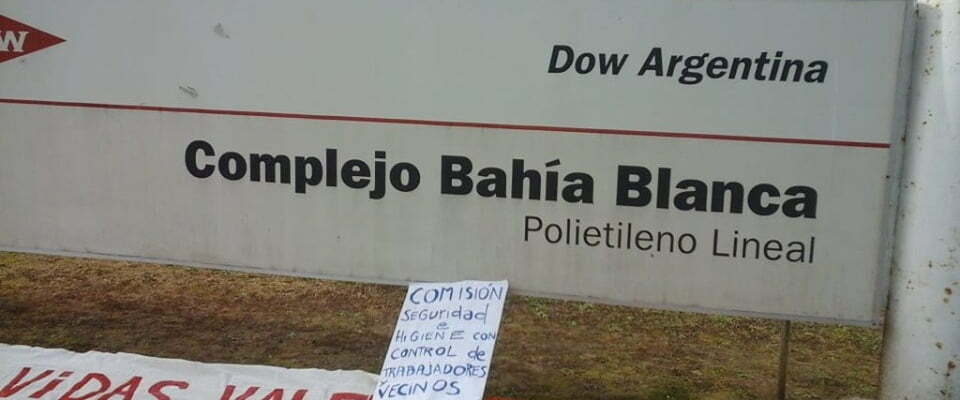 Dow Argentina
Complejo Bahía Blanca
Polietileno Lineal
COMISIÓN
SEGUridad
e
HiGIENE CON
CONTROL de
TRABAJADORES
y
VECINOS
ViDAS